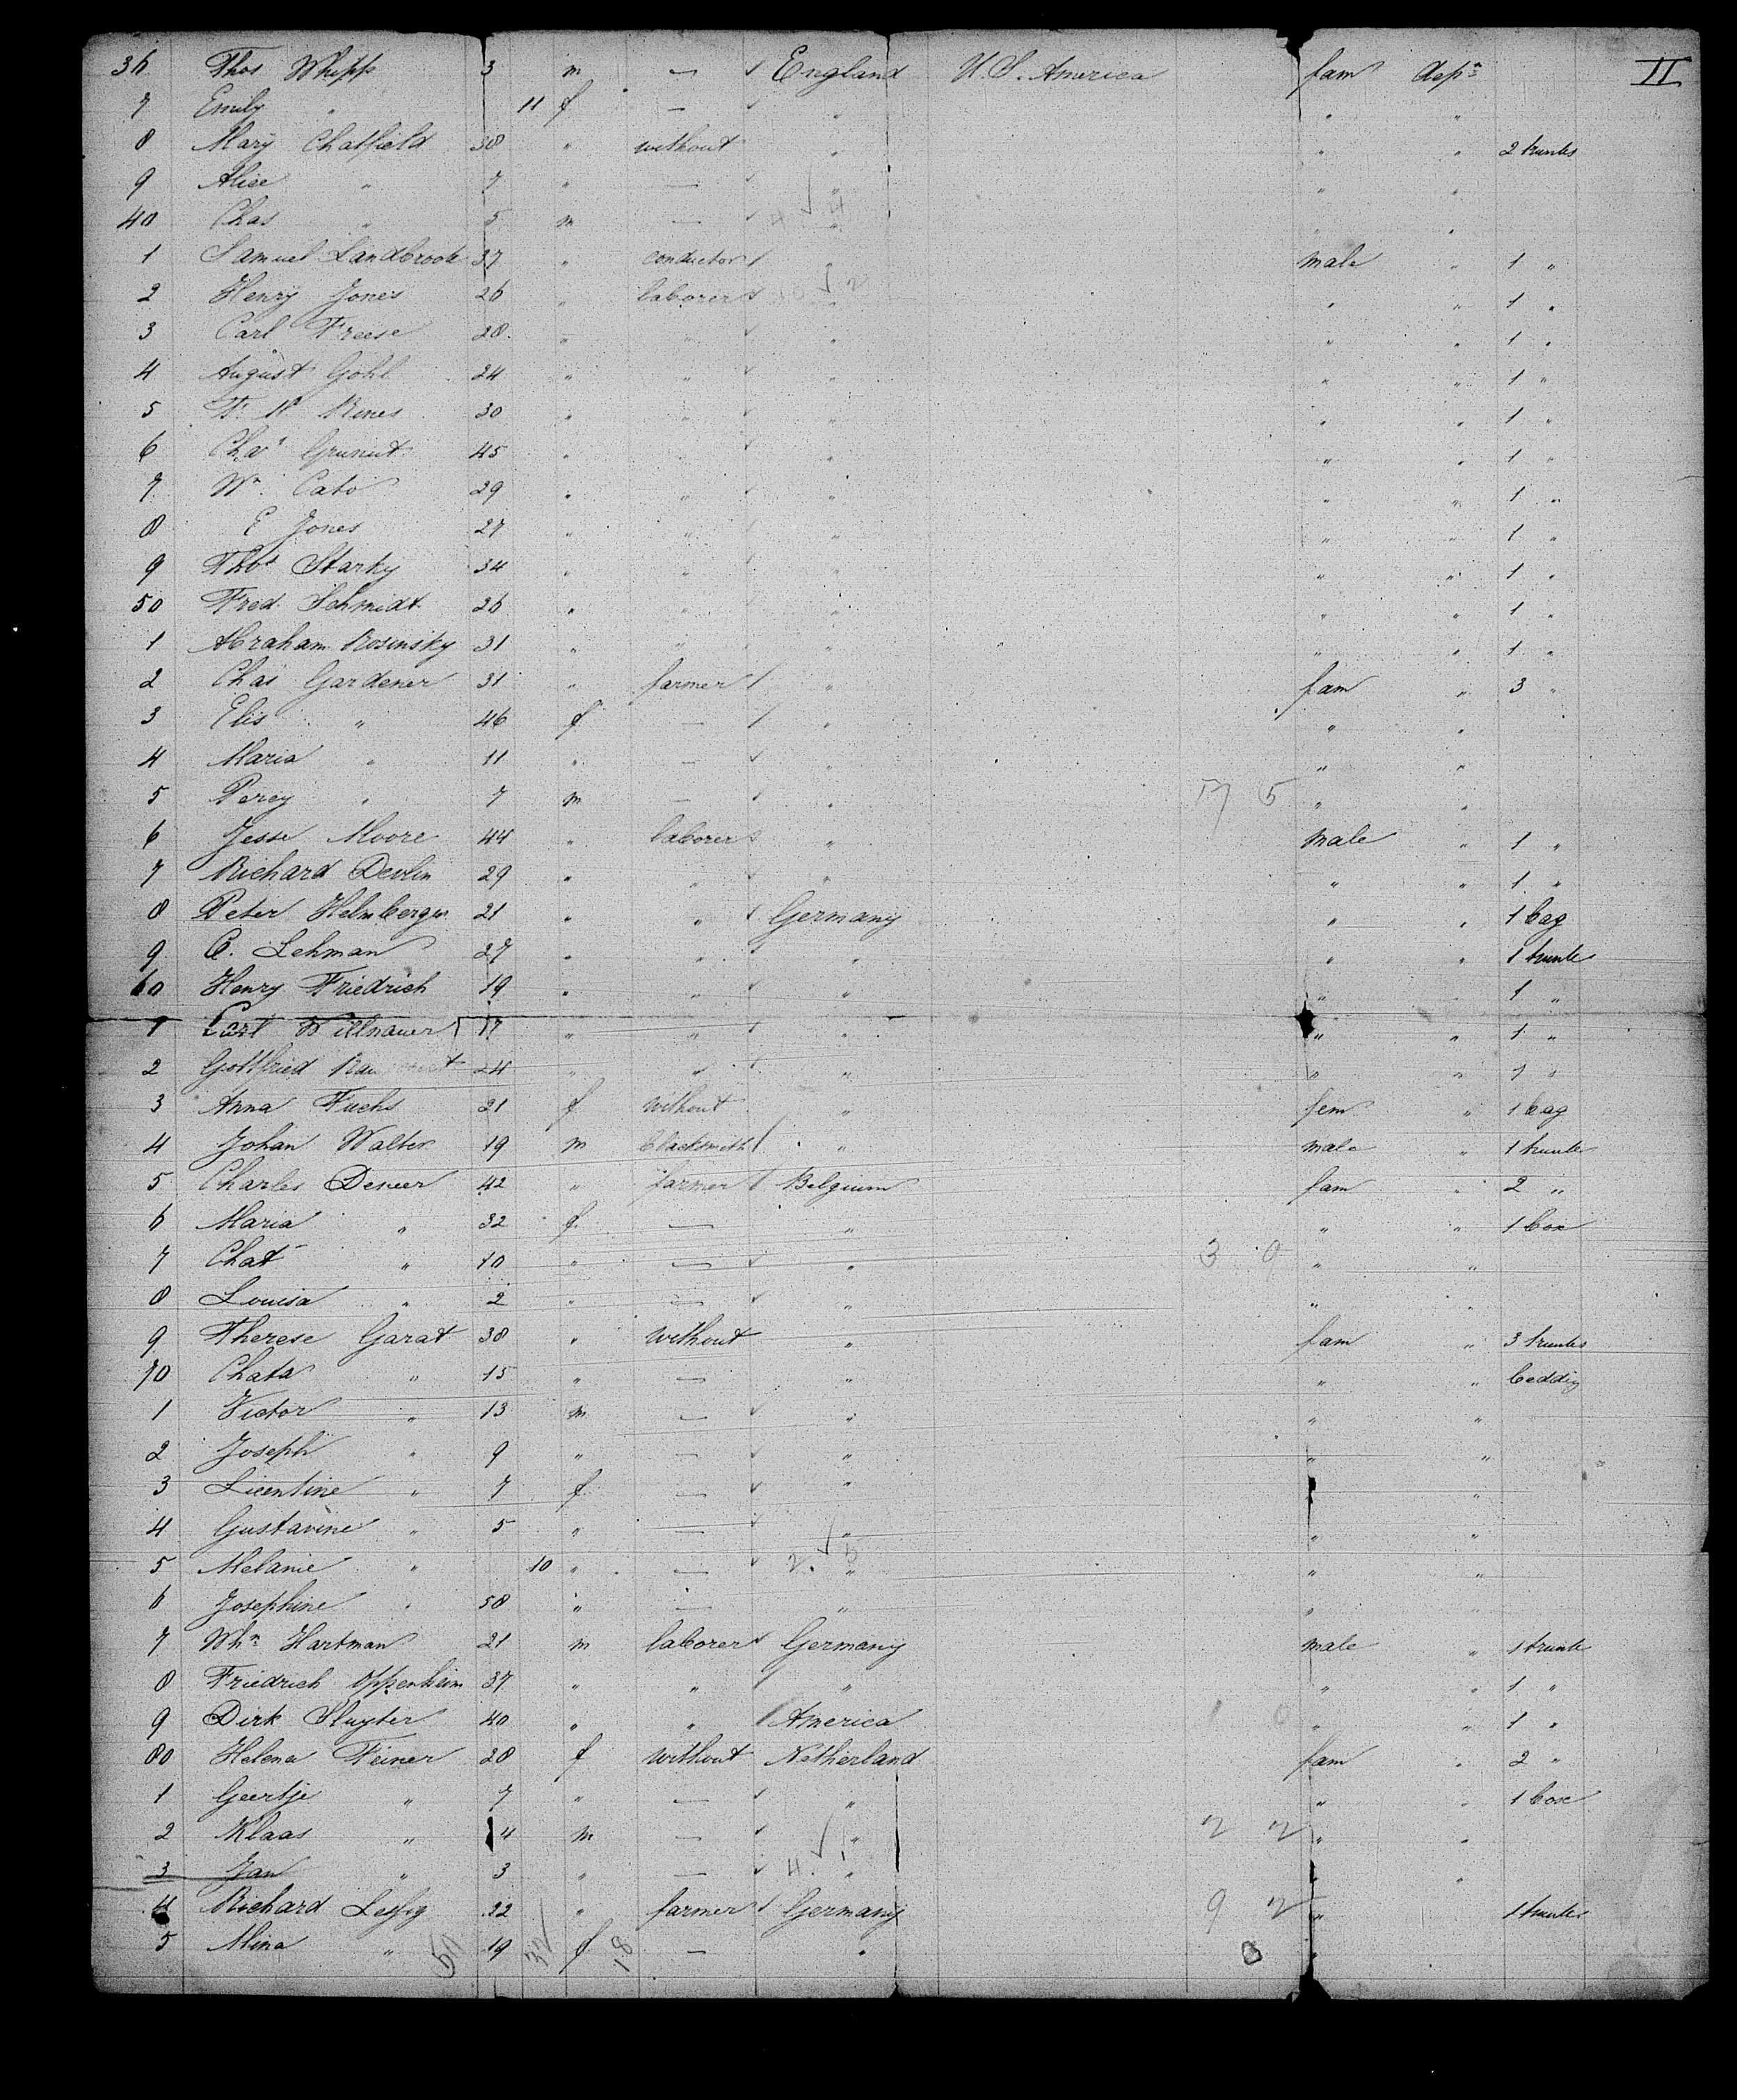 36 Thos Whipp 3 m — England U.S. America fam Asp<sup>n</sup> II
7 Emily " 11 f — " " "
8 Mary Chatfield 38 " without " " " 2 trunks
9 Alice " 7 " — " " "
40 Chas " 5 m — " " "
1 Samuel Landbrook 37 " conductor " male " 1 "
2 Henry Jones 26 " laborer " " " 1 "
3 Carl Freese 28 " " " " " 1 "
4 August Gohl 24 " " " " " 1 "
5 F. W. Rines 30 " " " " " 1 "
6 Chas Grunut 45 " " " " " 1 "
7 Wm. Cato 29 " " " " " 1 "
8 E Jones 27 " " " " " 1 "
9 Thos Starky 34 " " " " " 1 "
50 Fred. Schmidt 26 " " " " " 1 "
1 Abraham Rosinsky 31 " " " " " 1 "
2 Chas Gardener 31 " farmer " fam " 3 "
3 Elis " 46 f — " " "
4 Maria " 11 " — " " "
5 Percy " 7 m — " 17 5 " "
6 Jesse Moore 44 " laborer " male " 1 "
7 Richard Devlin 29 " " " " " 1 "
8 Peter Helmberger 21 " " Germany " " 1 bag
9 C. Lehman 27 " " " " " 1 trunk
60 Henry Friedrich 19 " " " " " 1 "
1 Carl Willnauer 17 " " " " " 1 "
2 Gottfried 24 " " " " " 1 "
3 Anna Fuchs 21 f without " fem " 1 bag
4 Johan Walter 19 m blacksmith " male " 1 trunk
5 Charles Deneer 42 " farmer Belgium fam " 2 "
6 Maria " 32 f — " " " 1 box
7 Chat " 10 " — " 3 0 " "
8 Louisa " 2 " — " " "
9 Therese Garat 38 " without " fam " 3 trunks
70 Chata " 15 " — " " " bedding
1 Victor " 13 m — " " "
2 Joseph " 9 " — " " "
3 Licentine " 7 f — " " "
4 Gustavine " 5 " — " " "
5 Melanie " 10 " — " " "
6 Josephine " 58 " — " " "
7 Whm Hartman 21 m laborer Germany male " 1 trunk
8 Friedrich Oppenheim 37 " " " " " 1 "
9 Dirk Sluyter 40 " " America " " 1 "
80 Helena Feiner 28 f without Netherland fam " 2 "
1 Geertje " 7 " — " " " 1 box
2 Klaas " 4 m — " 2 2 " "
3 Jan " 3 " — " " "
4 Richard Lessig 32 " farmer Germany 9 2 " 1 trunk
5 Mina " 19 f — " 0 "
50 32 18